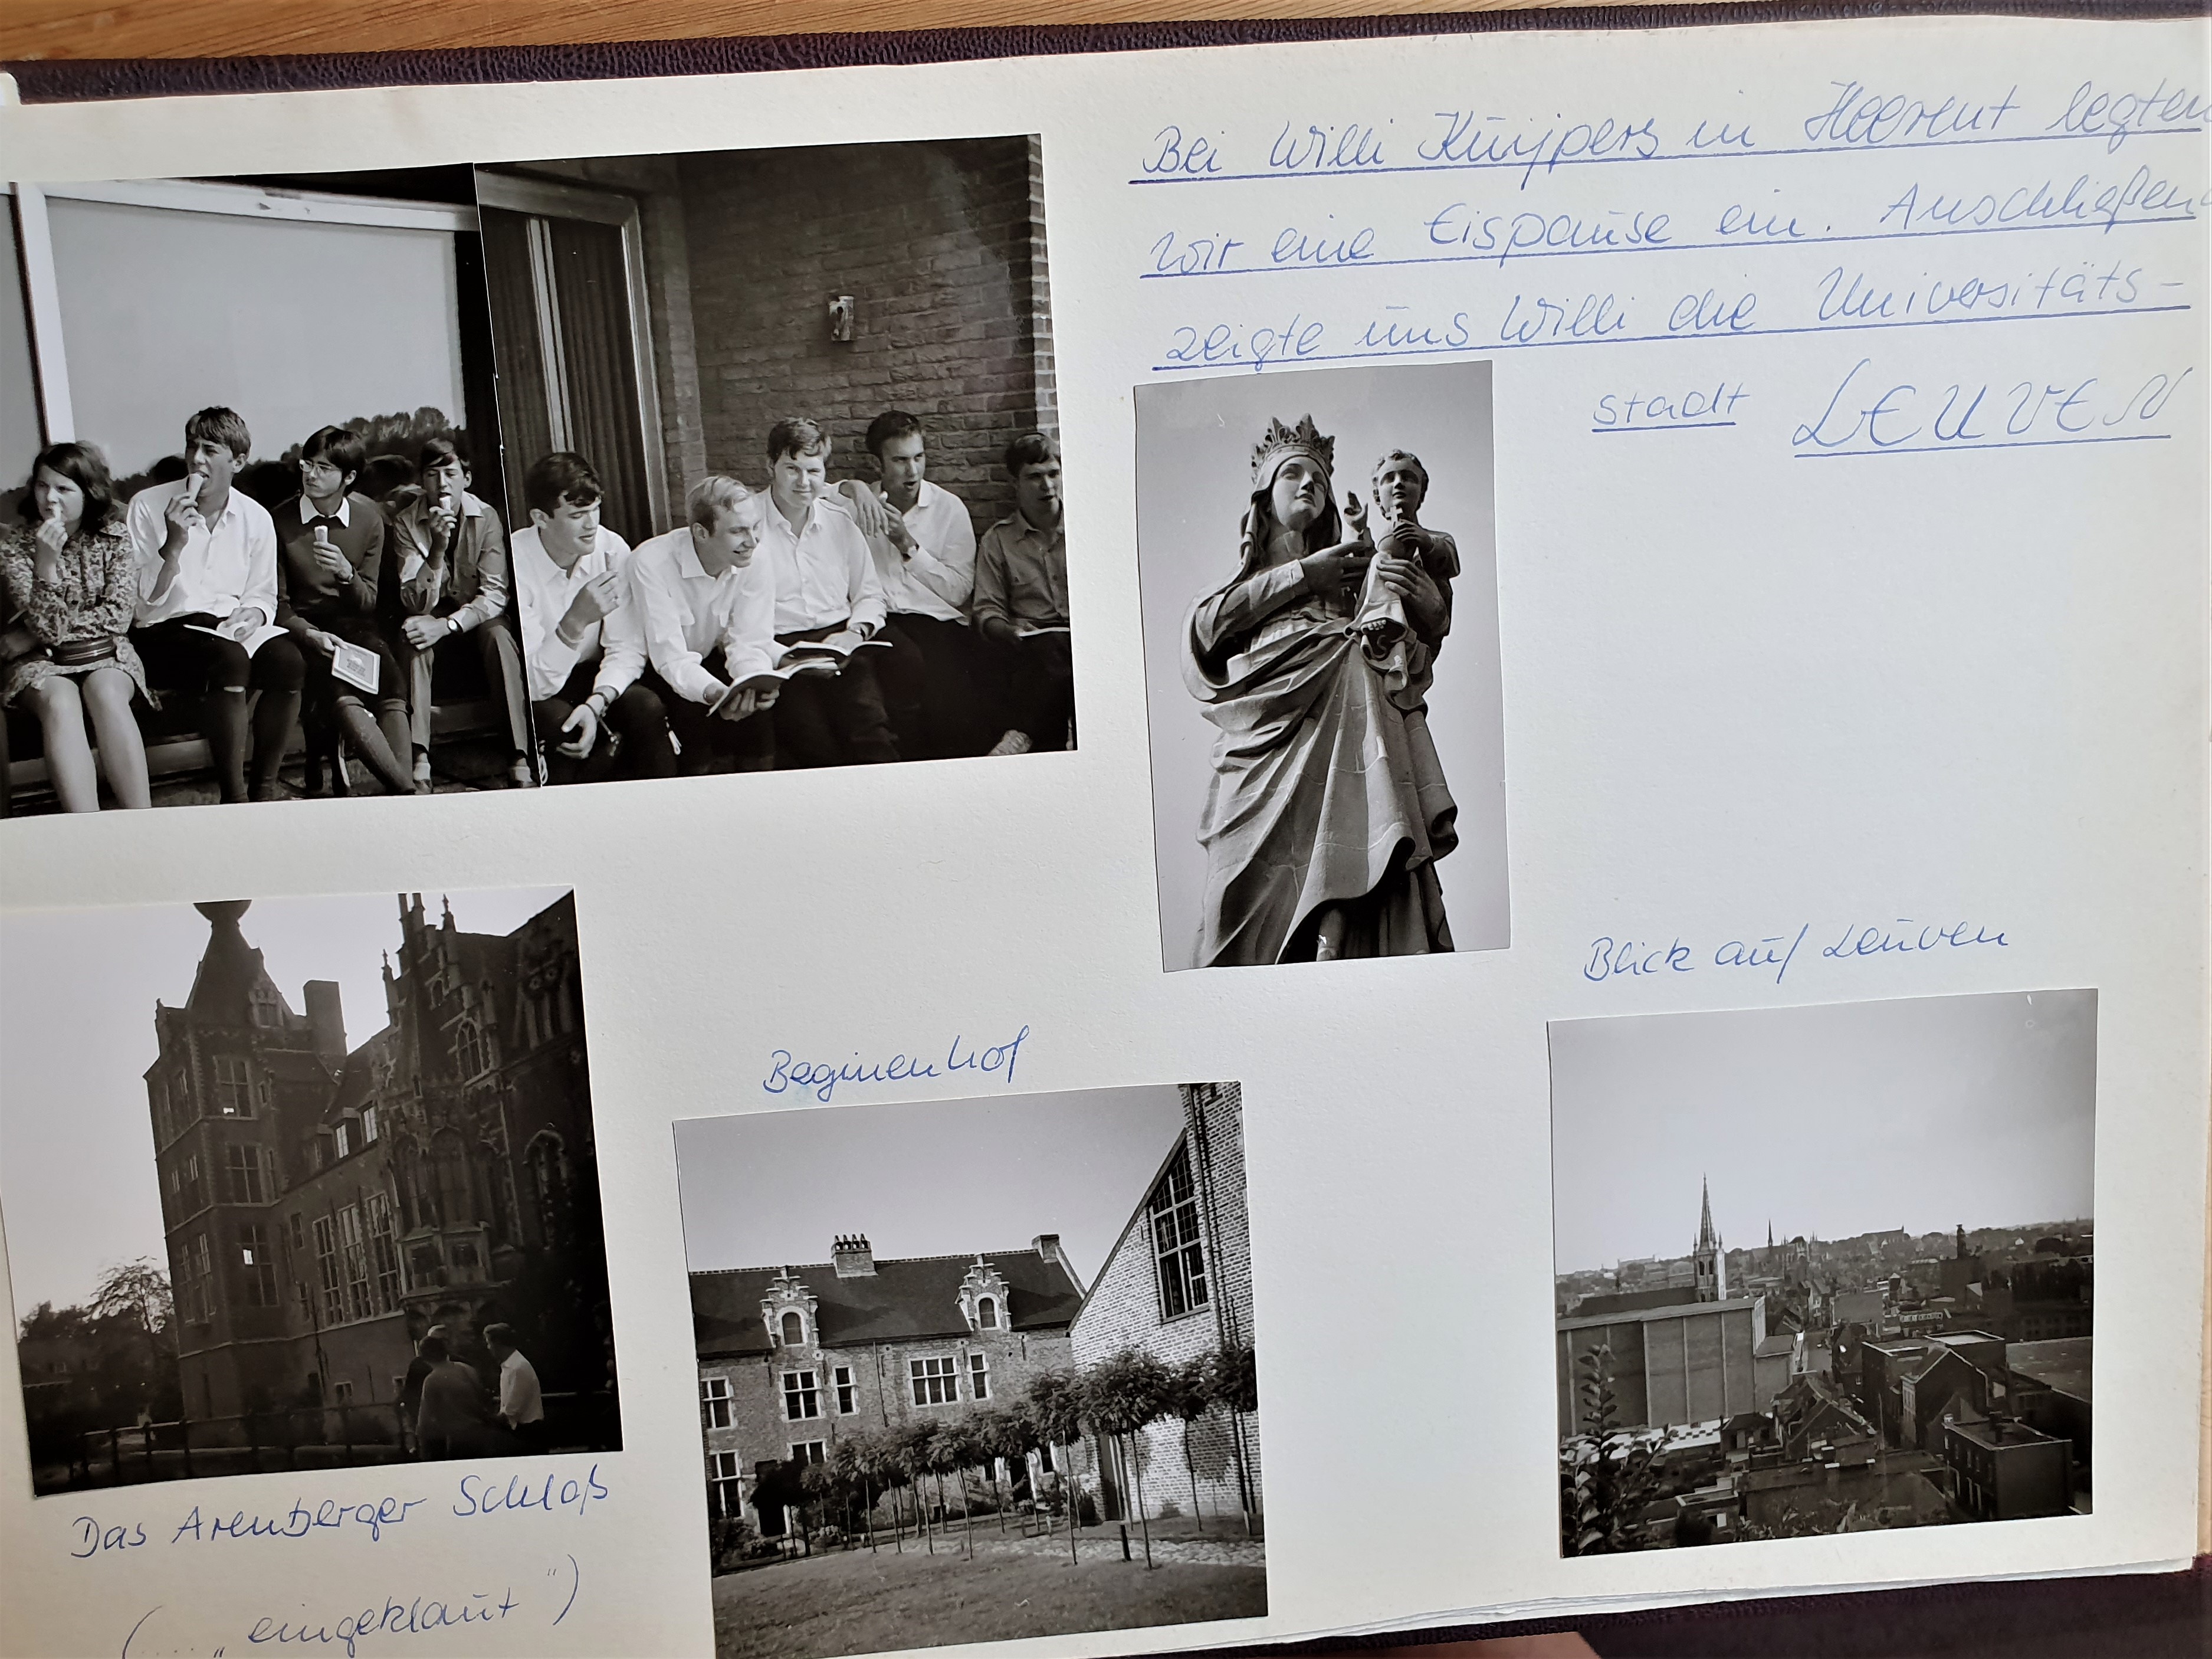 Bei Willi Kuijpers in Heerent legten
wir eine Eispause ein. Anschließend
zeigte uns Willi die Universitäts-
stadt LEUVEN
Blick auf Leuven
Beginenhof
Das Arenberger Schloß
(... „eingeklaut")